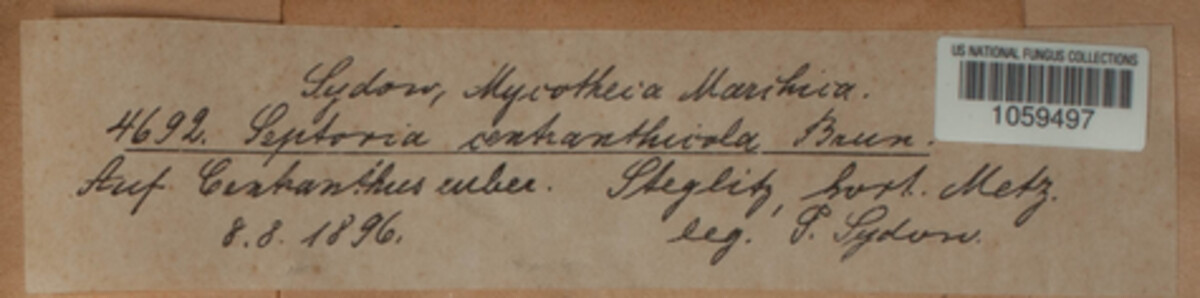 Sydow, Mycotheca Marchica.
4692. Septoria centranthicola Brun.
Auf Centranthus ruber. Steglitz, hort. Metz.
8.8.1896. leg. P. Sydow.
US NATIONAL FUNGUS COLLECTIONS
1059497